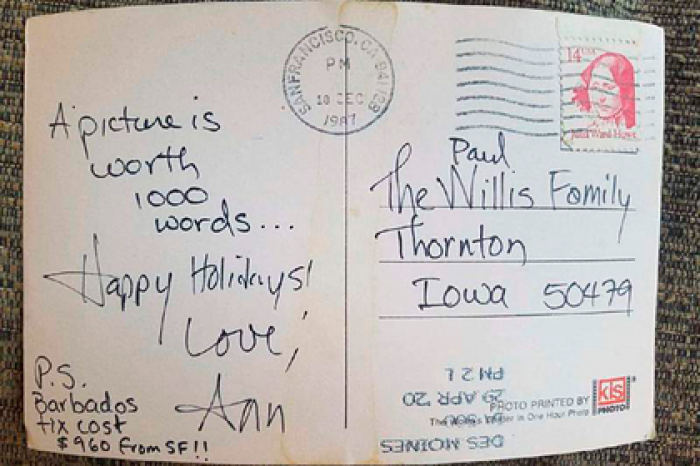 SAN FRANCISCO, CA 94188
PM
18 DEC
1987
14 USA
Julia Ward Howe
A picture is
worth
1000
words...
Happy Holidays!
Love,
Ann
P.S.
Barbados
tix cost
$960 from SF!!
Paul
The Willis Family
Thornton
Iowa 50479
DES MOINES
29 APR '20
PM 2 L
PHOTO PRINTED BY
KIS
PHOTO
Leader in One Hour Photo